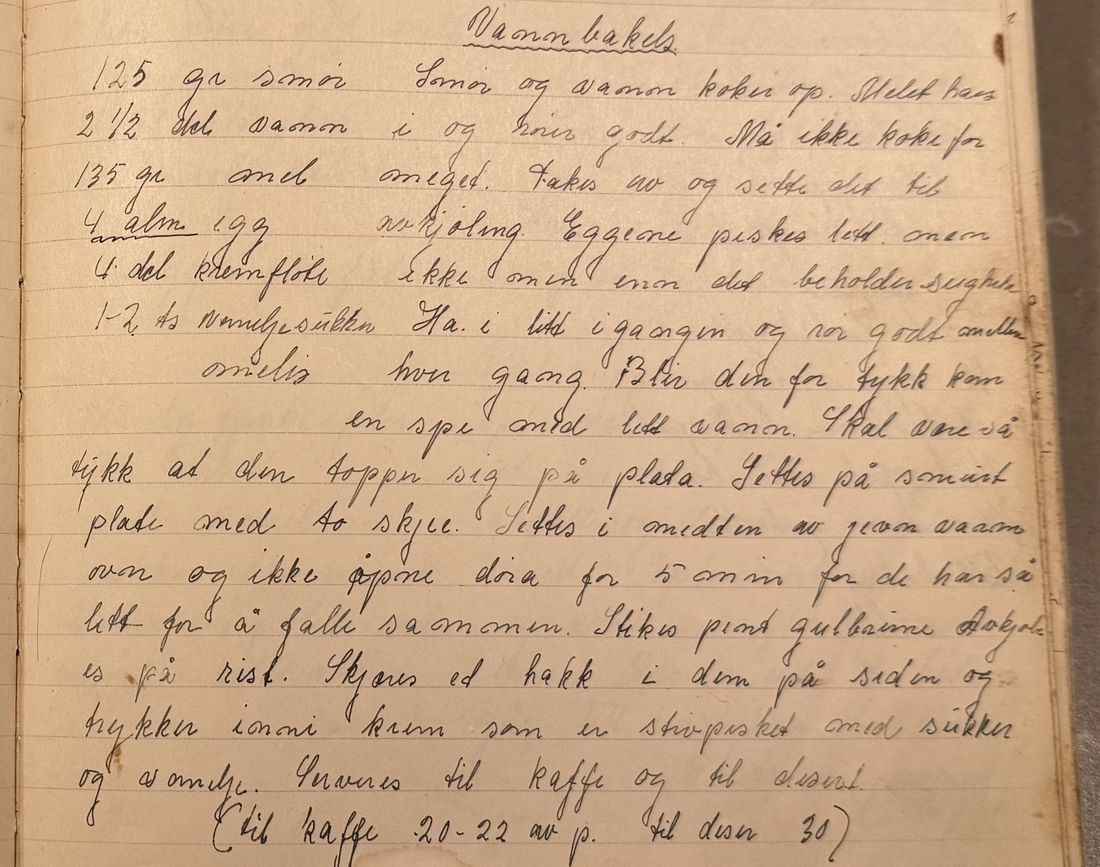 Vannbakels
125 gr smør Smør og vann koker op. Melet haes
2 1/2 del vann i og rører godt. Må ikke koke for
135 gr mel meget. Takes av og sette det til
4 alm egg avkjøling. Eggene piskes lett men
4 del kremfløte ikke mer enn det beholder seighete
1-2 ts vaneljesukker Ha i litt i gangen og rør godt mellem
melis hver gang. Blir den for tykk kan
en spe med litt vann. Skal være så
tykk at den topper sig på plata. Settes på smurt
plate med to skjee. Settes i midten av jevn varm
ovn og ikke åpne døra for 5 min for de har så
lett for å falle sammen. Stikes pent gulbrune Avkjøl-
es på rist. Skjæres et hakk i dem på siden og
trykker inni krem som er stivpisket med sukker
og vanelje. Serveres til kaffe og til desert.
(til kaffe 20-22 av p. til deser 30)